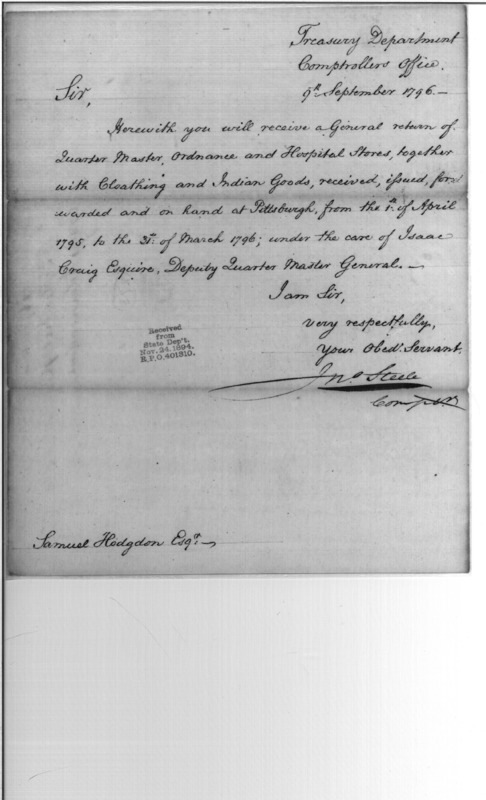 Treasury Department
Comptrollers Office.
9th September 1796.—
Sir,
Herewith you will receive a General return of
Quarter Master, Ordnance and Hospital Stores, together
with Cloathing and Indian Goods, received, issued, for-
warded and on hand at Pittsburgh, from the 1st. of April
1795, to the 31st. of March 1796; under the care of Isaac
Craig Esquire, Deputy Quarter Master General.—
I am Sir,
very respectfully,
Your Obedt. Servant.
Jno Steele
Compr.
Received
from
State Dep't.
Nov. 24, 1894.
R.P.O. 401310.
Samuel Hodgdon Esqr.—